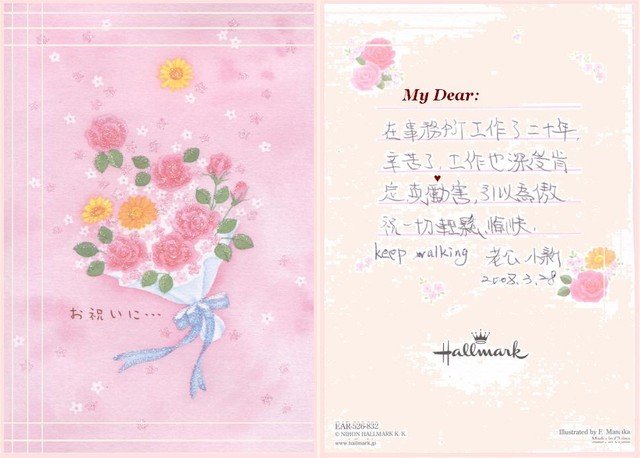 お祝いに…
My Dear:
在事務所工作了二十年,
辛苦了,工作也深受肯
定 勵害,引以為傲
祝一切輕鬆,愉快.
keep walking 老公 小新
2008.3.28
Hallmark
EAR-526-832
© NIHON HALLMARK K. K.
www.hallmark.jp
Illustrated by F.
Made in China